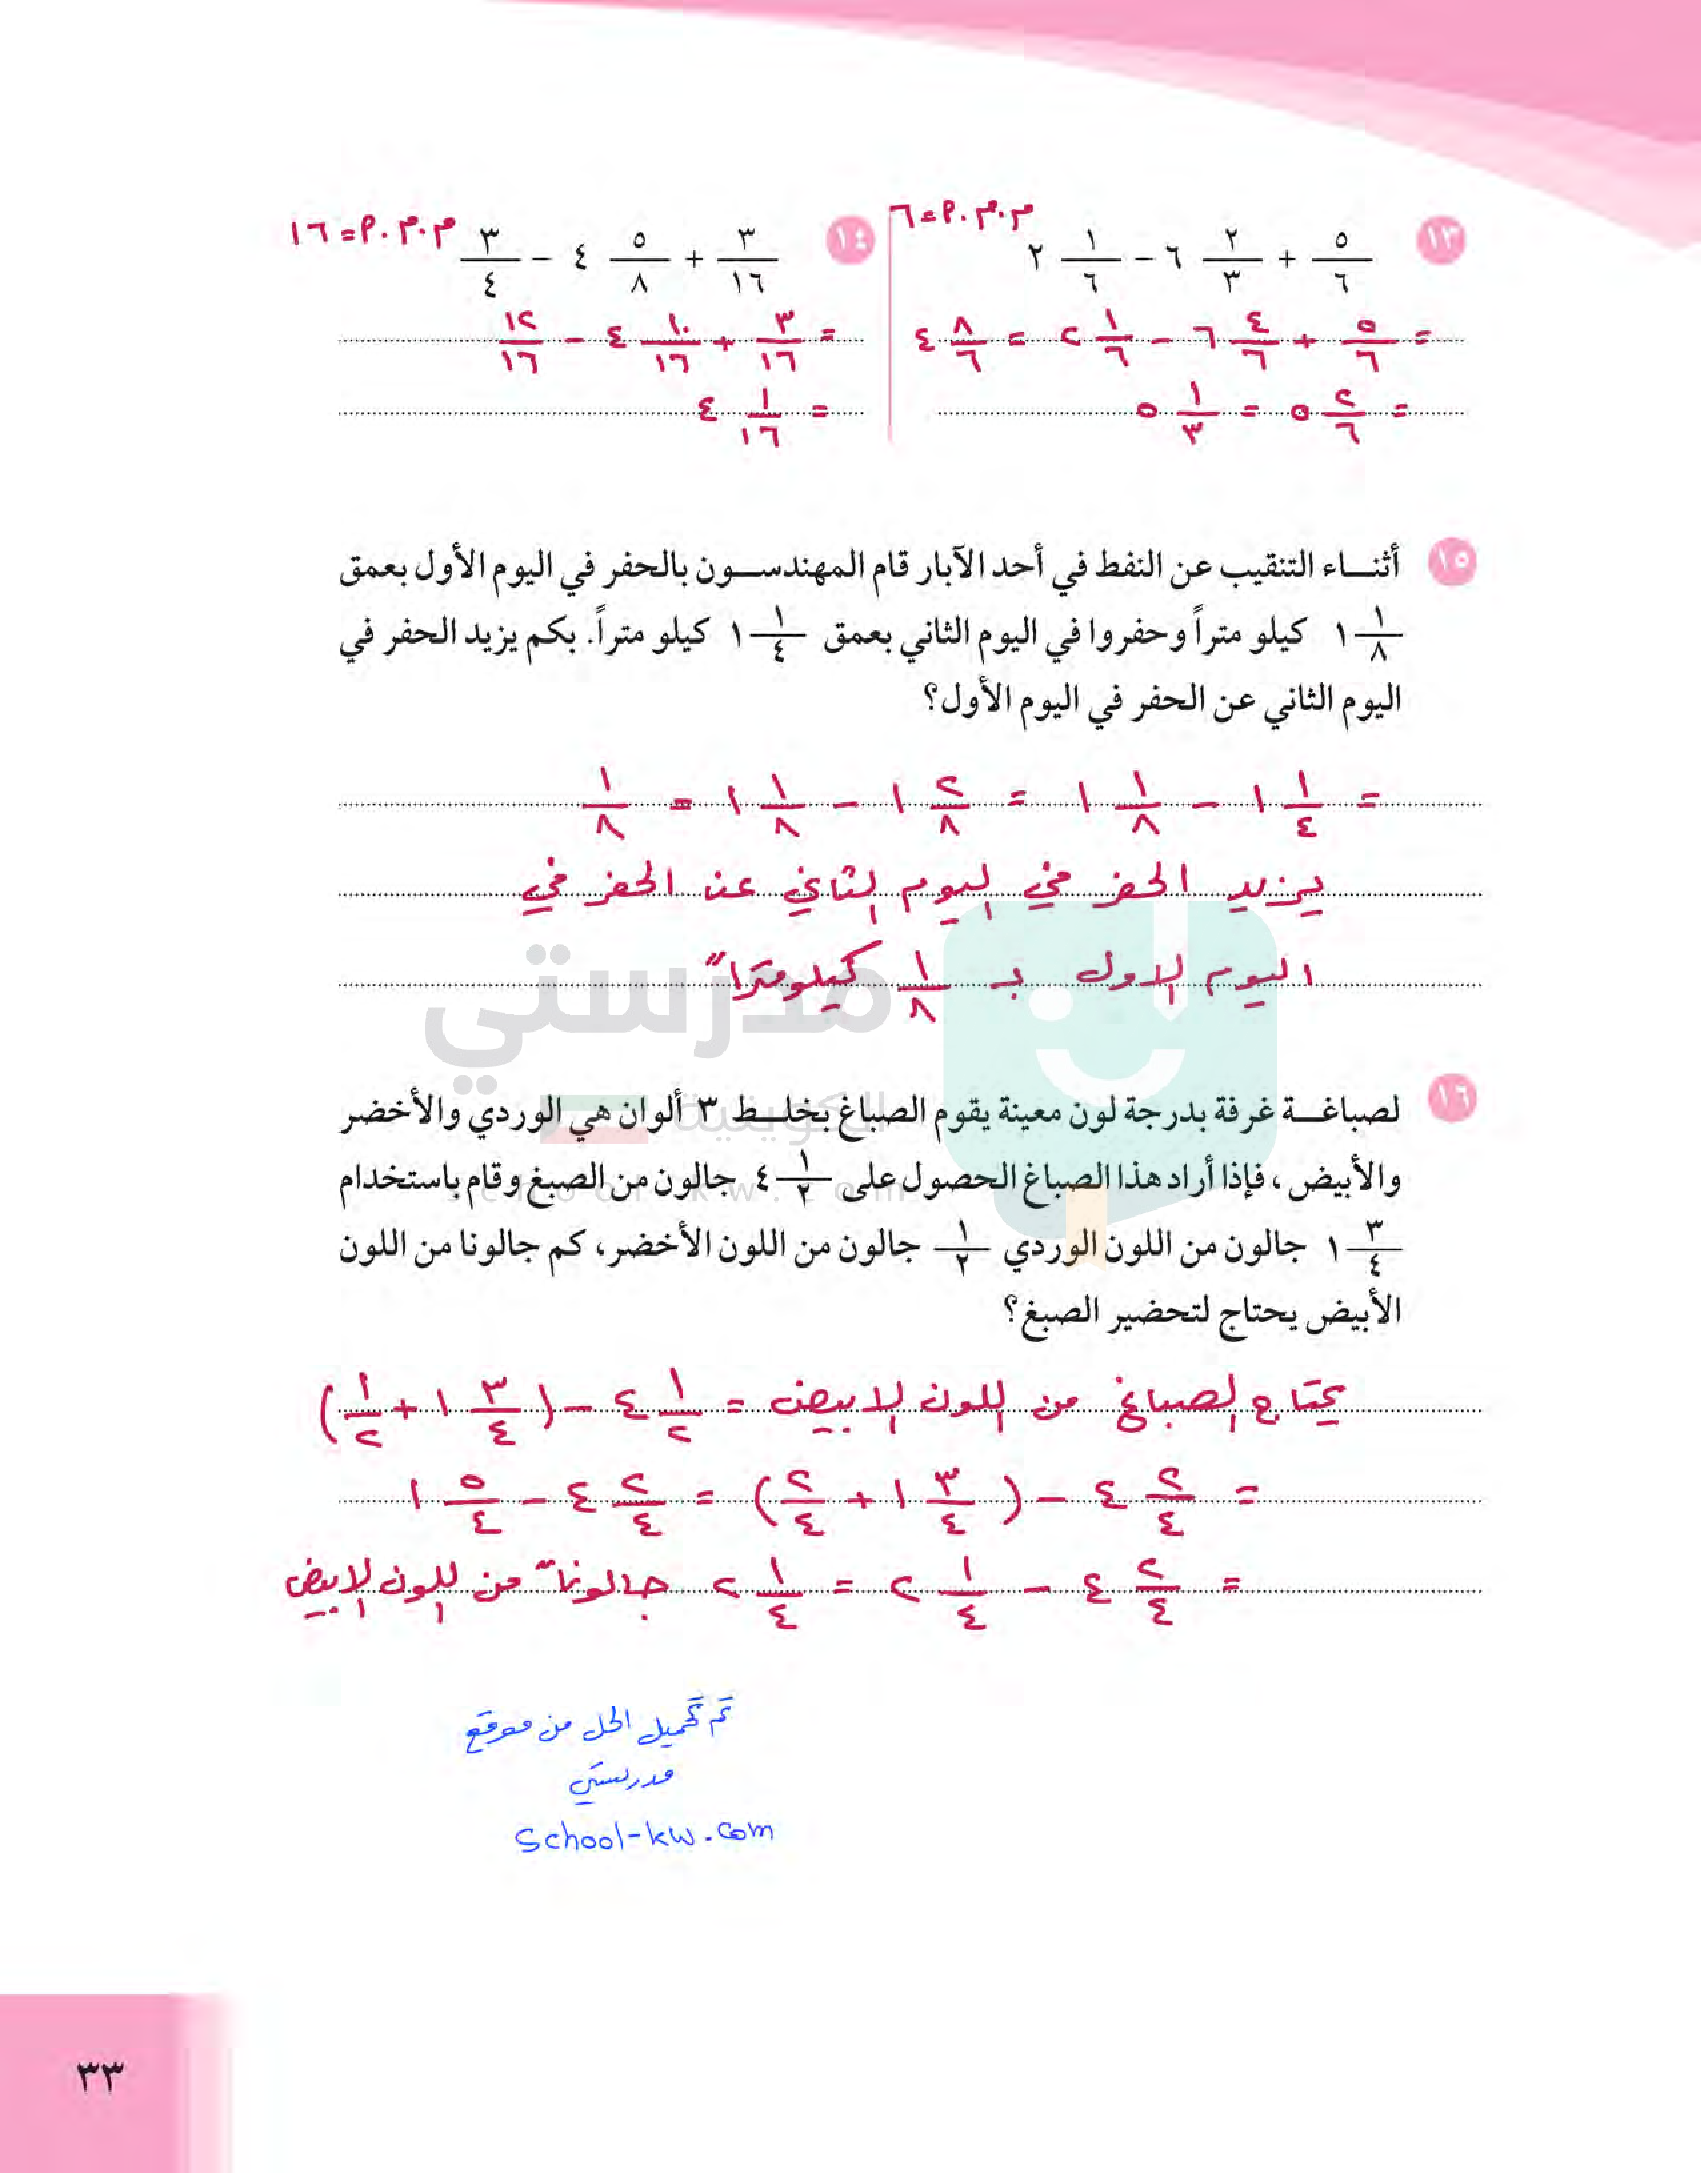 ١٣ ٥/٦ + ٢/٣ ٦ − ١/٦ ٢ م.م.أ=٦
= ٥/٦ + ٤/٦ ٦ − ١/٦ ٢ = ٨/٦ ٤
= ٢/٦ ٥ = ١/٣ ٥
١٤ ٣/١٦ + ٥/٨ ٤ − ٣/٤ م.م.أ=١٦
= ٣/١٦ + ١٠/١٦ ٤ − ١٢/١٦
= ١/١٦ ٤
١٥ أثناء التنقيب عن النفط في أحد الآبار قام المهندسون بالحفر في اليوم الأول بعمق
١/٨ ١ كيلو متراً وحفروا في اليوم الثاني بعمق ١/٤ ١ كيلو متراً. بكم يزيد الحفر في
اليوم الثاني عن الحفر في اليوم الأول؟
= ١/٤ ١ − ١/٨ ١ = ٢/٨ ١ − ١/٨ ١ = ١/٨
يزيد الحفر في اليوم الثاني عن الحفر في
اليوم الاول بـ ١/٨ كيلومتراً
مدرستي
الكويتية
school-kw.com
١٦ لصباغة غرفة بدرجة لون معينة يقوم الصباغ بخلط ٣ ألوان هي الوردي والأخضر
والأبيض ، فإذا أراد هذا الصباغ الحصول على ١/٢ ٤ جالون من الصبغ وقام باستخدام
٣/٤ ١ جالون من اللون الوردي ١/٢ جالون من اللون الأخضر، كم جالونا من اللون
الأبيض يحتاج لتحضير الصبغ؟
يحتاج الصباغ من اللون الابيض = ١/٢ ٤ − (٣/٤ ١ + ١/٢)
= ٢/٤ ٤ − (٣/٤ ١ + ٢/٤) = ٢/٤ ٤ − ٥/٤ ١
= ٢/٤ ٤ − ١/٤ ٢ = ١/٤ ٢ جالوناً من اللون الابيض
تم تحميل الحل من موقع
مدرستي
school-kw.com
٣٣